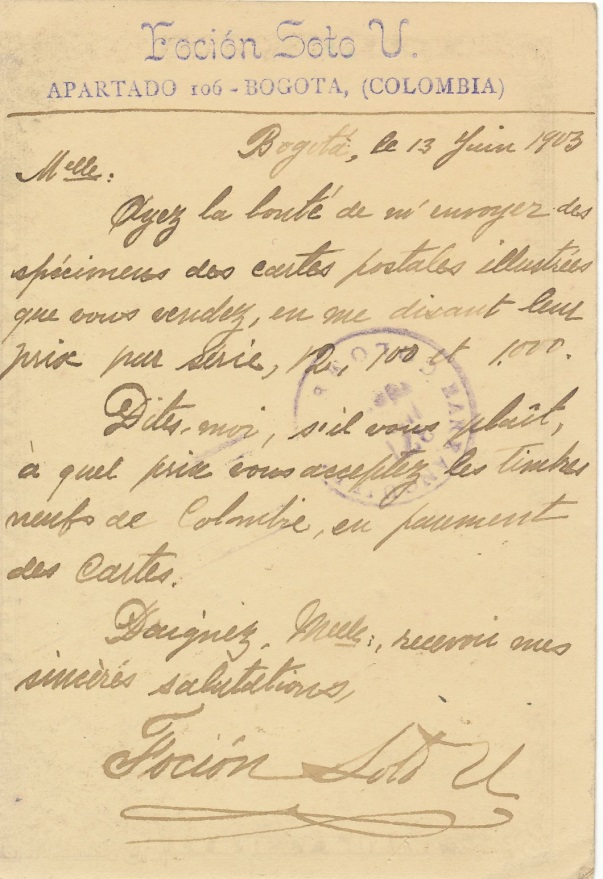 Foción Soto U.
APARTADO 106 - BOGOTA, (COLOMBIA)
Bogotá, le 13 Juin 1903
Melle:
Ayez la bonté de m'envoyer des
spécimens des cartes postales illustrées
que vous vendez, en me disant leur
prix par serie, 12, 100 et 1.000.
Dites-moi, s'il vous plaît,
à quel prix vous acceptez les timbres
neufs de Colombie, en paument
des cartes.
Daignez, Melle:, recevoir mes
sincères salutations,
Foción Soto U